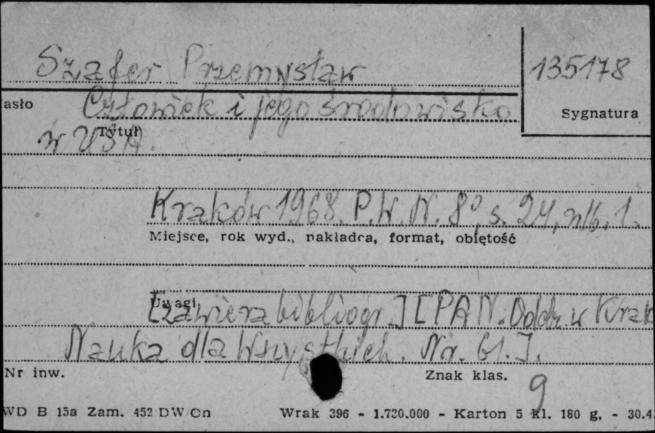 Szafer Przemysław
135178
asło
Człowiek i jego środowisko
Sygnatura
Tytuł
w USA.
Kraków 1968. P.W.N. 8° s. 24, nlb. 1.
Miejsce, rok wyd., nakładca, format, objętość
Uwagi
[zawiera bibliogr.] [PAN. Oddz. w Krak
Nauka dla Wszystkich. Nr. 61.].
Nr inw.
Znak klas.
9
WD B 15a Zam. 452 DW Cn
Wrak 396 - 1.720.000 - Karton 5 kl. 180 g. - 30.4